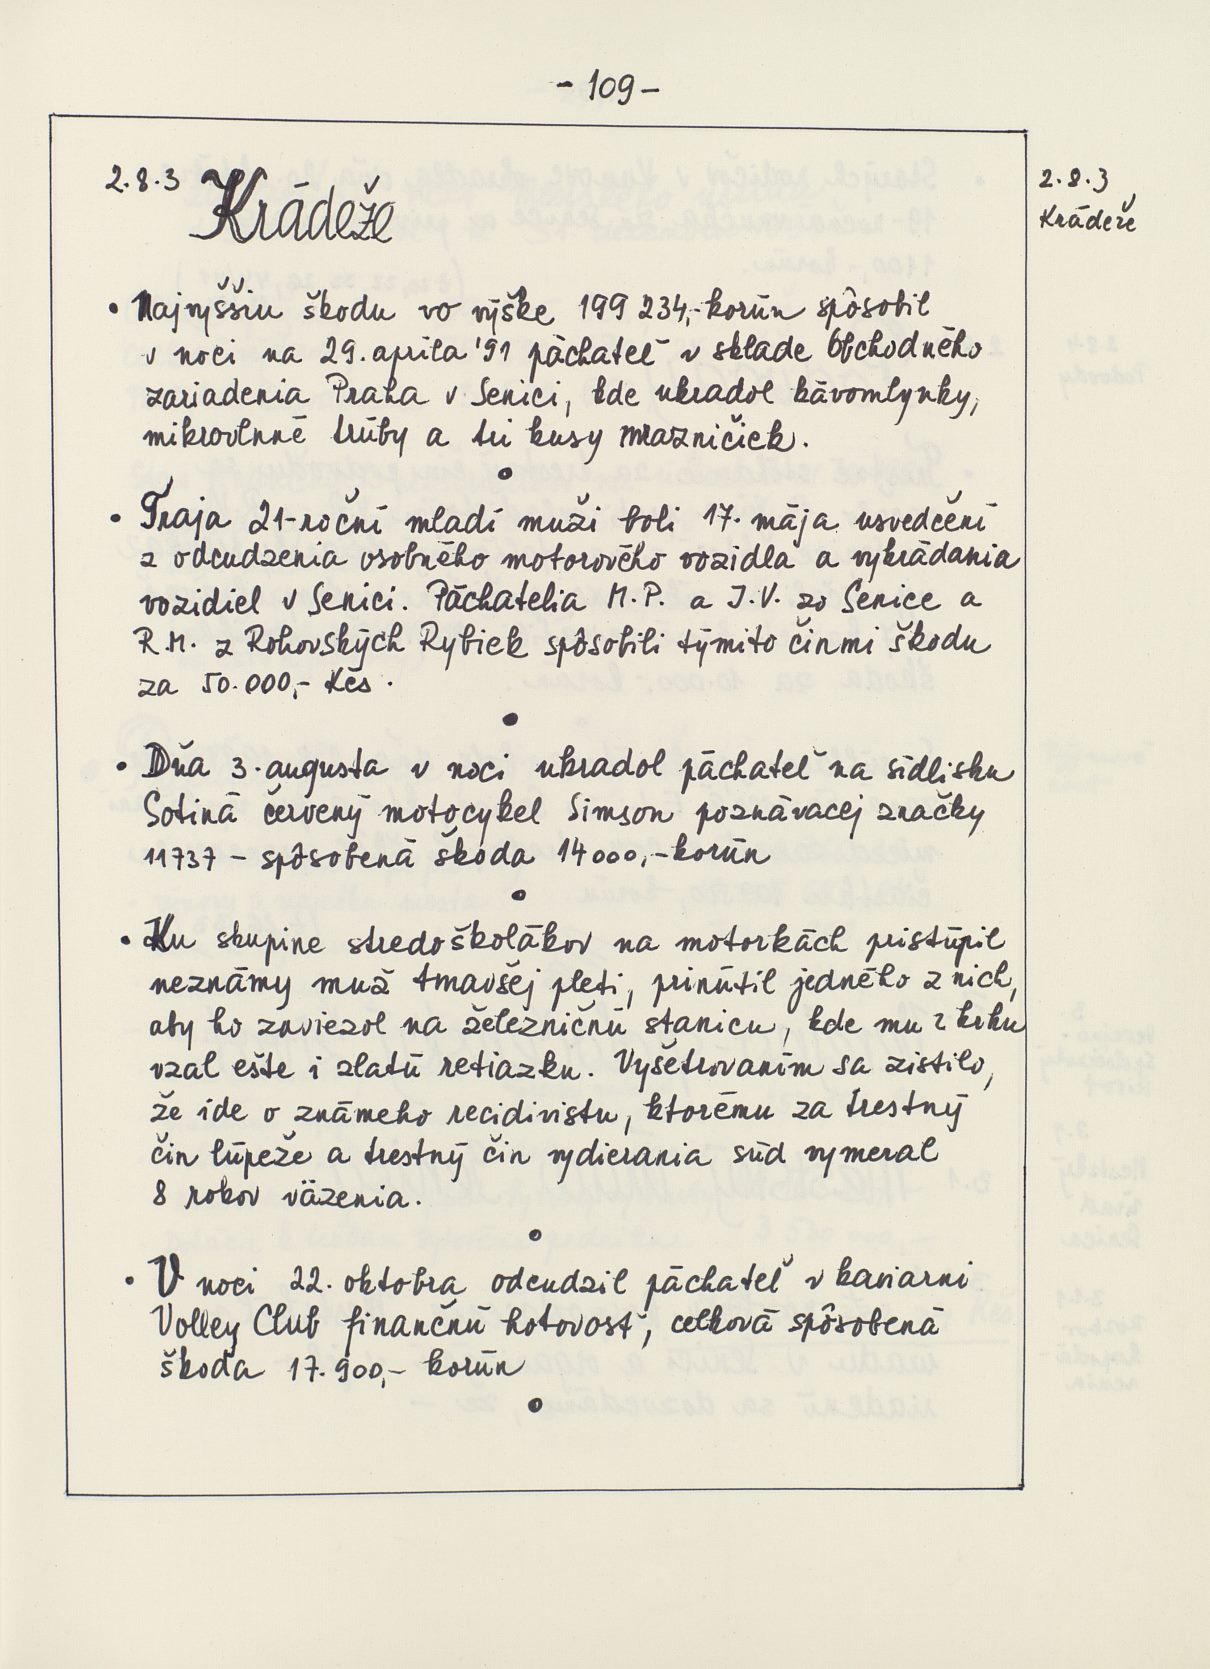 - 109 -
2.8.3 Krádeže
2.8.3
Krádeže
• Najvyššiu škodu vo výške 199 234,- korún spôsobil
v noci na 29. apríla '91 páchateľ v sklade Obchodného
zariadenia Praha v Senici, kde ukradol kávomlynky,
mikrovlnné trúby a tri kusy mrazničiek.
•
• Traja 21-roční mladí muži boli 17. mája usvedčení
z odcudzenia osobného motorového vozidla a vykrádania
vozidiel v Senici. Páchatelia M.P. a J.V. zo Senice a
R.M. z Rohovských Rybiek spôsobili týmito činmi škodu
za 50.000,- Kčs.
•
• Dňa 3. augusta v noci ukradol páchateľ na sídlisku
Sotiná červený motocykel Simson poznávacej značky
11737 - spôsobená škoda 14000,- korún
•
• Ku skupine stredoškolákov na motorkách pristúpil
neznámy muž tmavšej pleti, prinútil jedného z nich,
aby ho zaviezol na železničnú stanicu, kde mu z krku
vzal ešte i zlatú retiazku. Vyšetrovaním sa zistilo,
že ide o známeho recidivistu, ktorému za trestný
čin lúpeže a trestný čin vydierania súd vymeral
8 rokov väzenia.
•
• V noci 22. októbra odcudzil páchateľ v kaviarni
Volley Club finančnú hotovosť, celková spôsobená
škoda 17.900,- korún
•